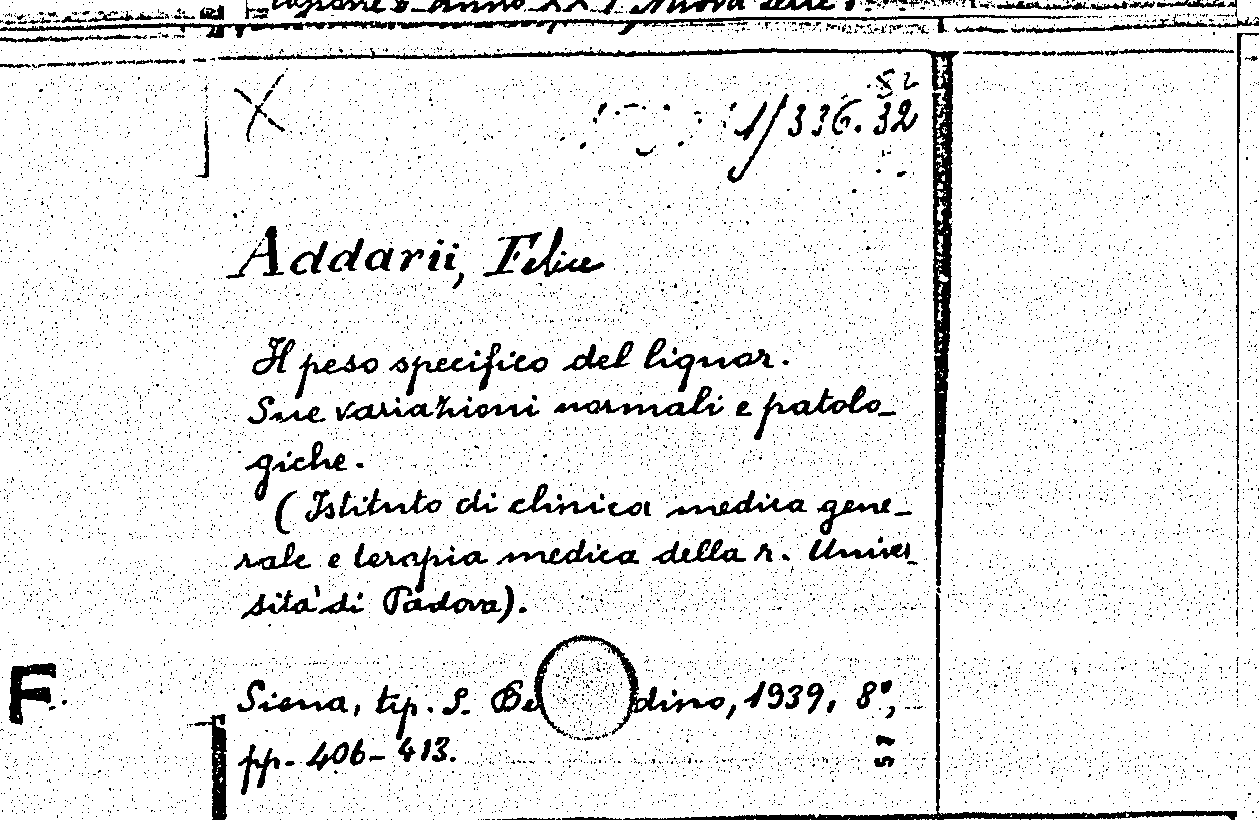 Anno XX Nuova Serie
82
1/336.32
Addarii, Felice
Il peso specifico del liquor.
Sue variazioni normali e patolo-
giche.
(Istituto di clinica medica gene-
rale e terapia medica della r. Univer-
sità di Padova).
F.
Siena, tip. S. Be dino, 1939, 8°,
pp. 406-413.
57